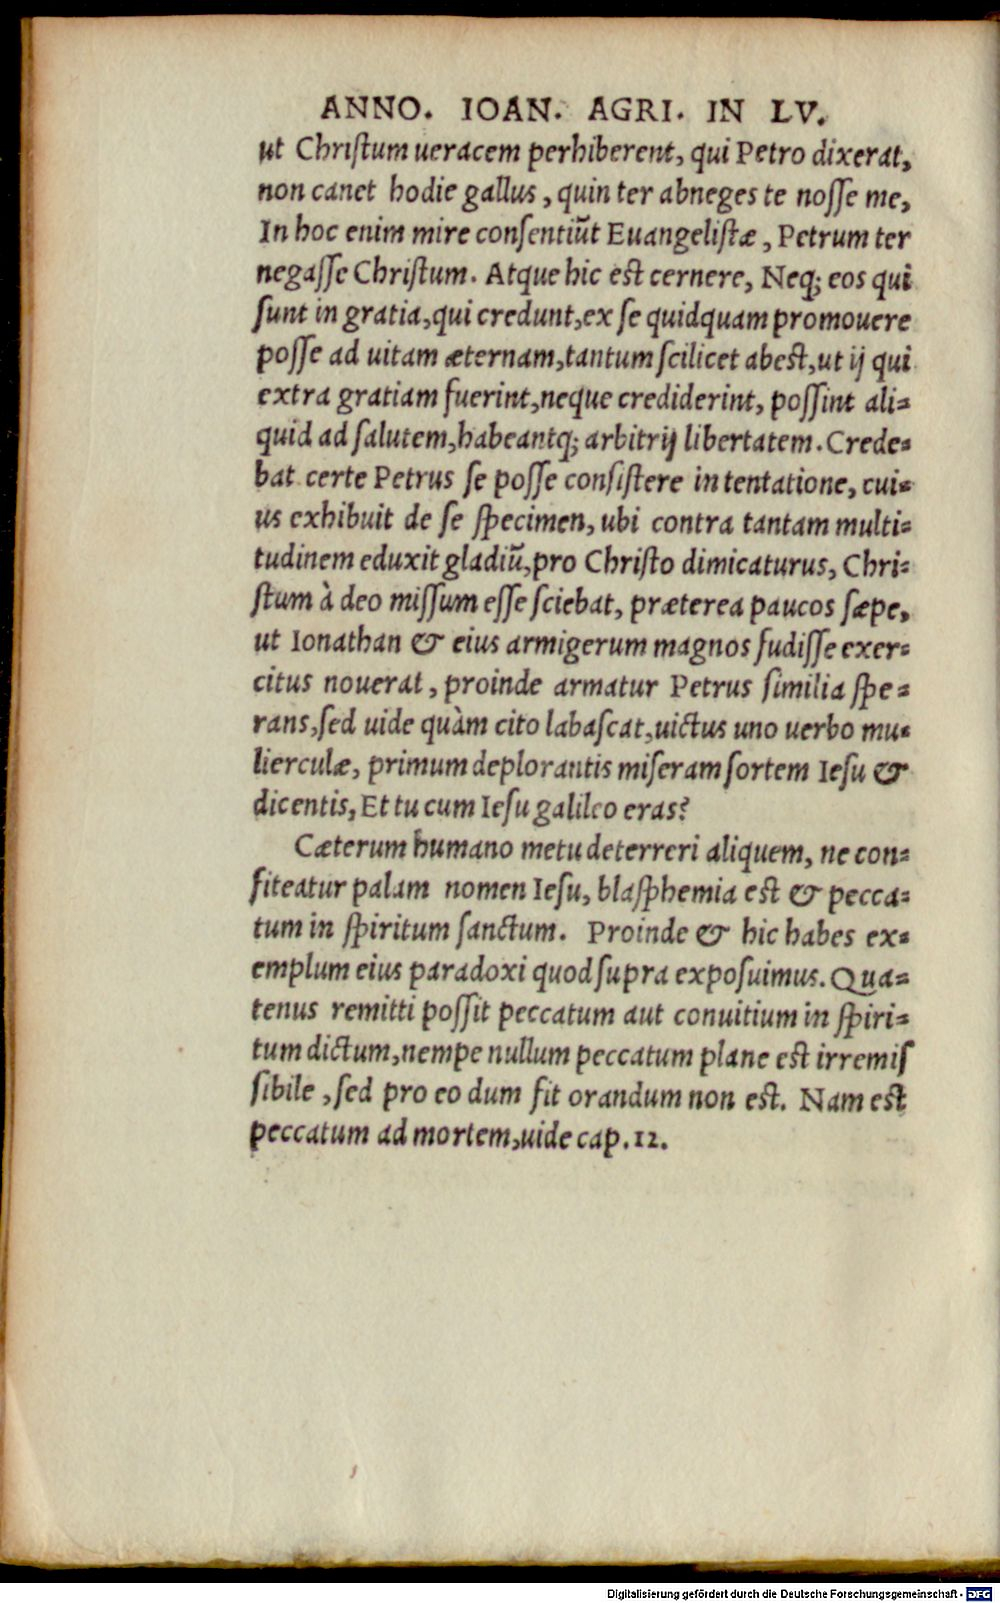 ANNO. IOAN. AGRI. IN LV.
ut Chriſtum ueracem perhiberent, qui Petro dixerat,
non canet hodie gallus, quin ter abneges te noſſe me,
In hoc enim mire conſentiũt Euangeliſtæ, Petrum ter
negaſſe Chriſtum. Atque hic est cernere, Neq; eos qui
ſunt in gratia, qui credunt, ex ſe quidquam promouere
poſſe ad uitam æternam, tantum ſcilicet abest, ut ij qui
extra gratiam fuerint, neque crediderint, poſſint ali=
quid ad ſalutem, habeantq; arbitrij libertatem. Crede=
bat certe Petrus ſe poſſe conſiſtere in tentatione, cui=
us exhibuit de ſe ſpecimen, ubi contra tantam multi=
tudinem eduxit gladiũ, pro Chriſto dimicaturus, Chri=
ſtum à deo miſſum eſſe ſciebat, præterea paucos ſæpe,
ut Ionathan & eius armigerum magnos fudiſſe exer=
citus nouerat, proinde armatur Petrus ſimilia ſpe=
rans, ſed uide quàm cito labaſcat, uictus uno uerbo mu=
lierculæ, primum deplorantis miſeram ſortem Ieſu &
dicentis, Et tu cum Ieſu galileo eras?
Cæterum humano metu deterreri aliquem, ne con=
fiteatur palam nomen Ieſu, blaſphemia est & pecca=
tum in ſpiritum ſanctum. Proinde & hic habes ex=
emplum eius paradoxi quod ſupra expoſuimus. Qua=
tenus remitti poſſit peccatum aut conuitium in ſpiri=
tum dictum, nempe nullum peccatum plane est irremiſ
ſibile, ſed pro eo dum fit orandum non est. Nam est
peccatum ad mortem, uide cap. 12.
Digitalisierung gefördert durch die Deutsche Forschungsgemeinschaft - DFG